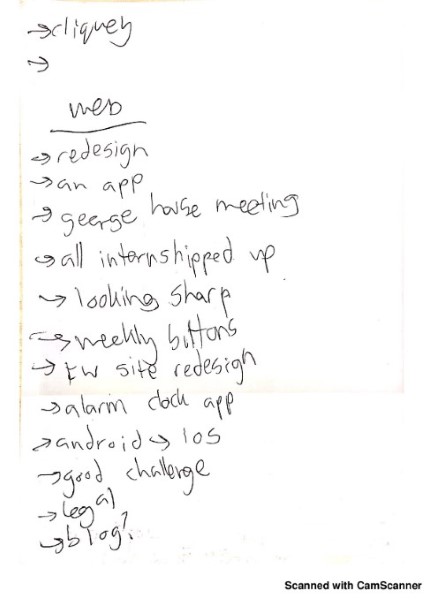 →cliquey
→
web
→redesign
→an app
→george house meeting
→all internshipped up
→looking sharp
→weekly buttons
→ site redesign
→alarm clock app
→android → ios
→good challenge
→legal
→blog?
Scanned with CamScanner